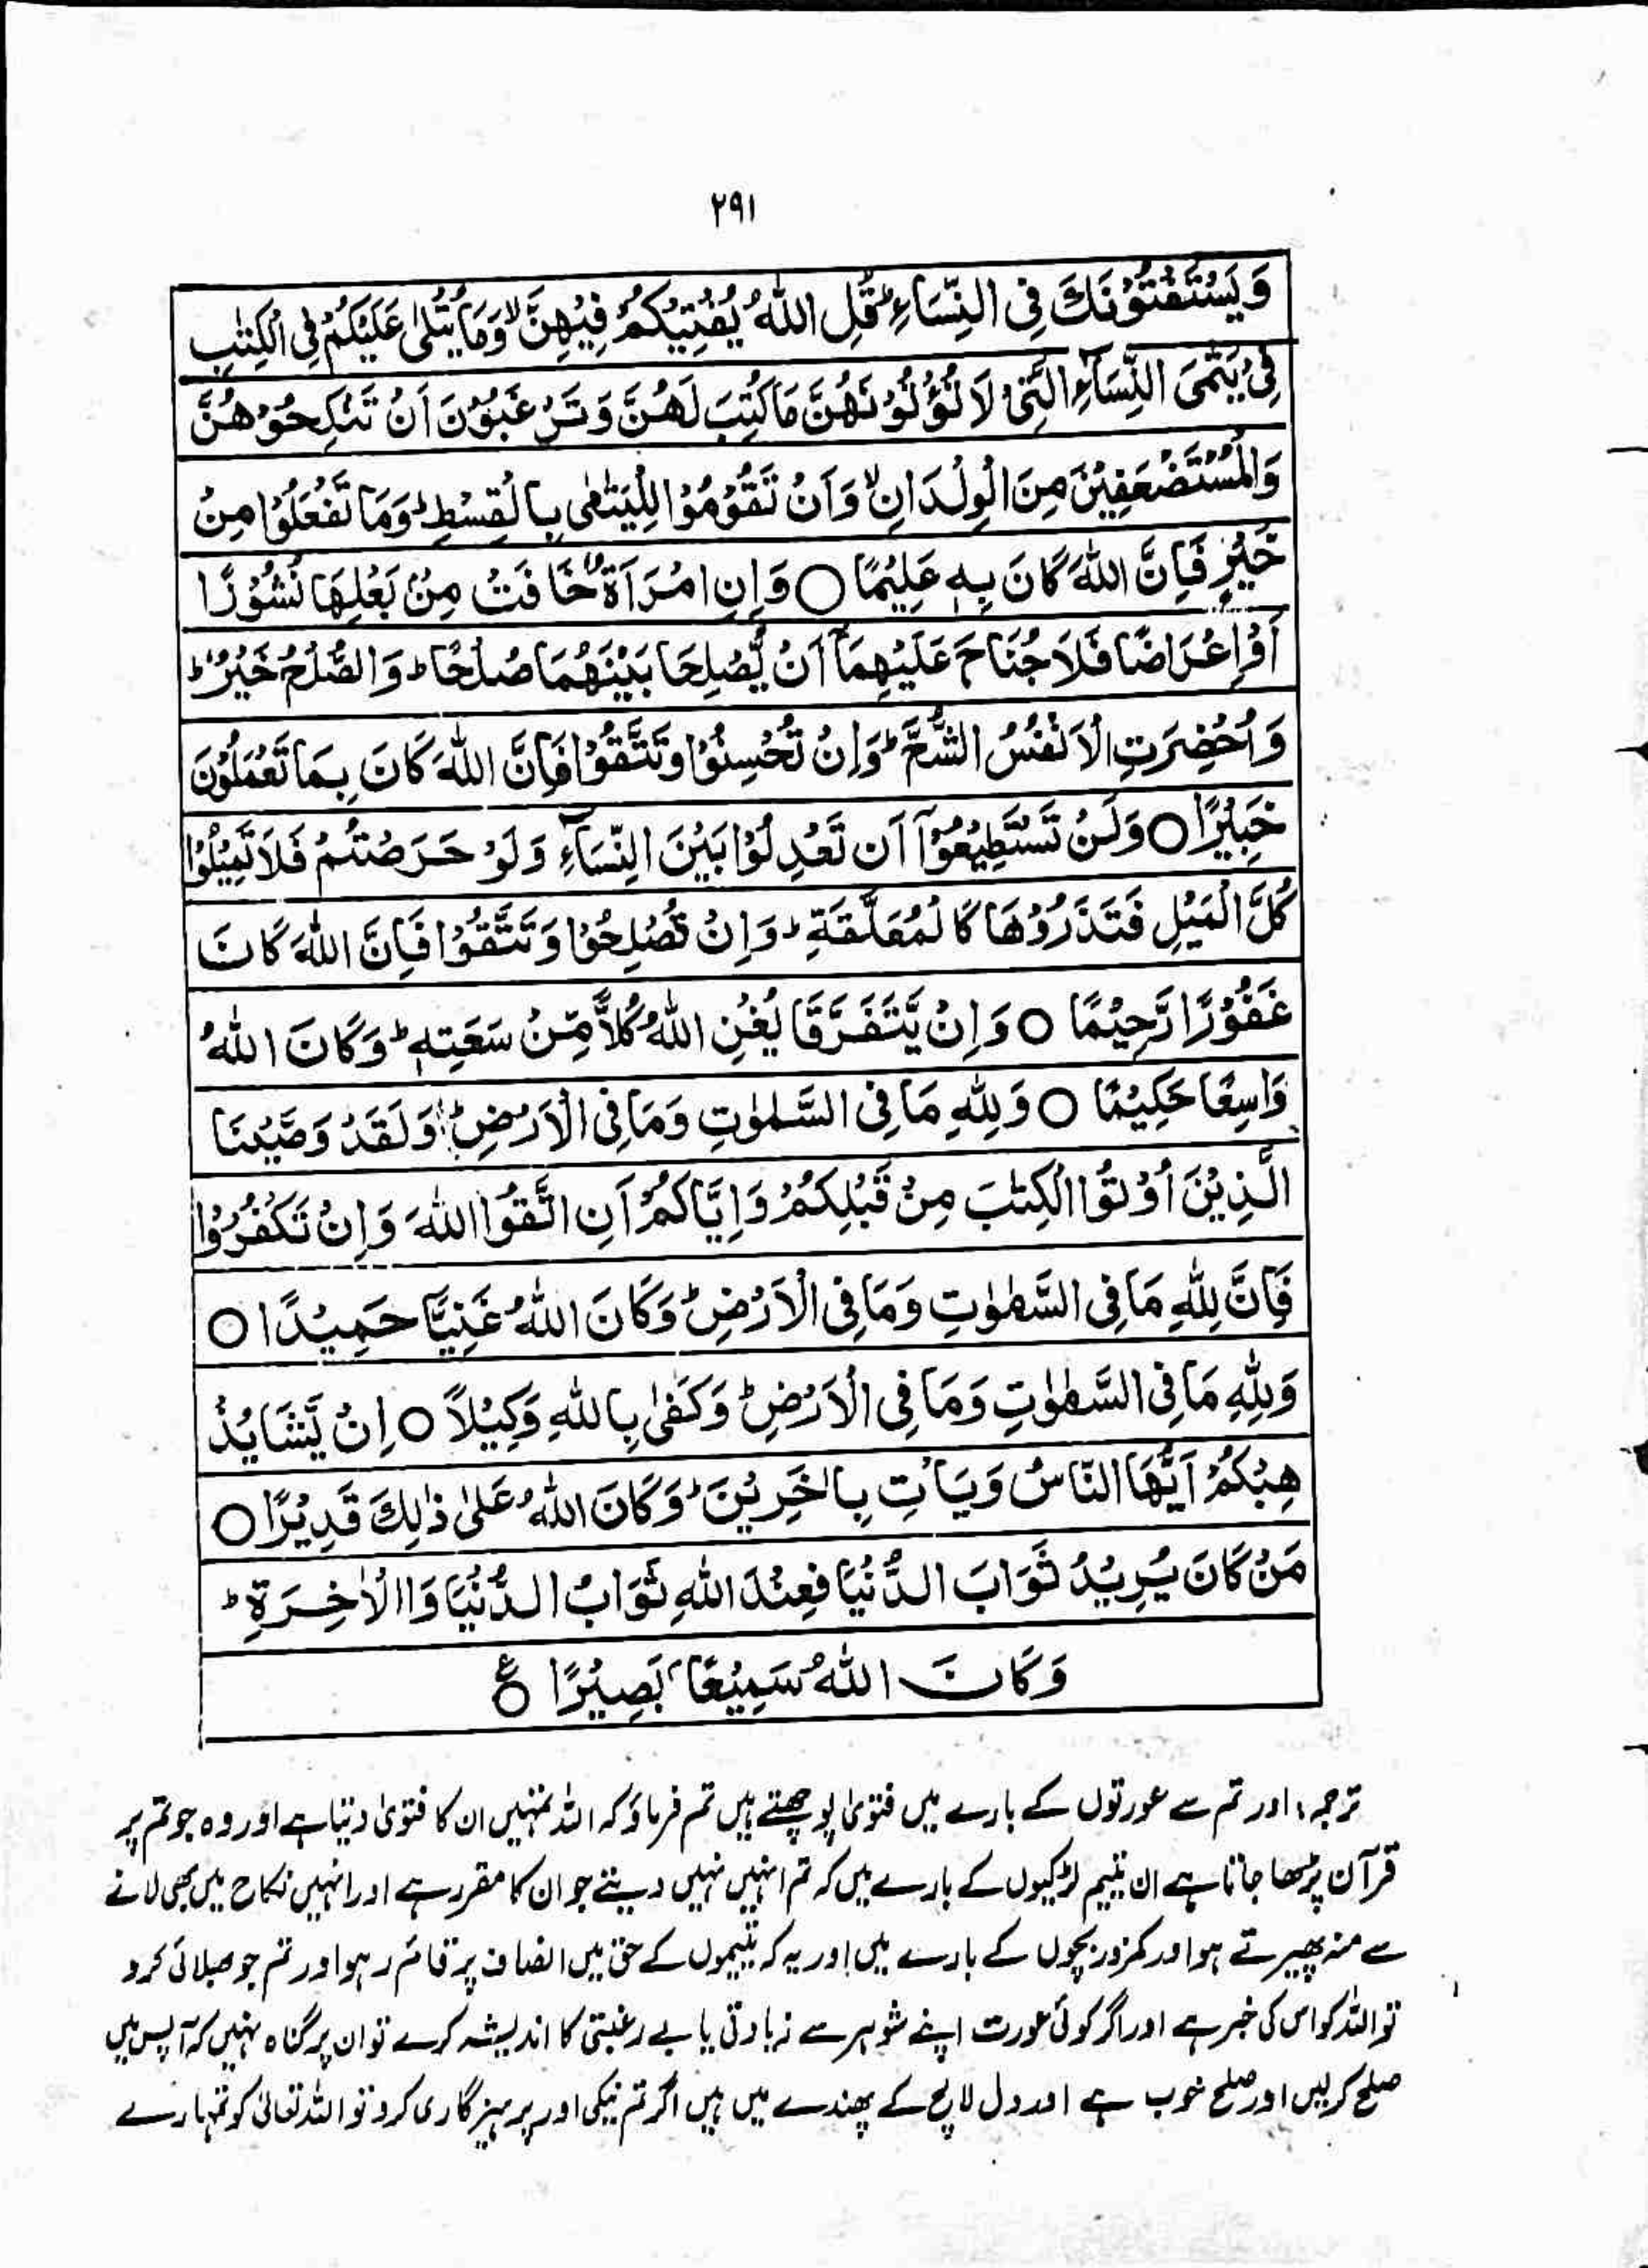 ۲۹۱
وَيَسْتَفْتُوْنَكَ فِى النِّسَاءِ ؕ قُلِ اللّٰهُ يُفْتِيْكُمْ فِيْهِنَّ ۙ وَمَا يُتْلٰى عَلَيْكُمْ فِى الْكِتٰبِ
فِىْ يَتٰمَى النِّسَآءِ الّٰتِىْ لَا تُؤْتُوْنَهُنَّ مَا كُتِبَ لَهُنَّ وَتَرْغَبُوْنَ اَنْ تَنْكِحُوْهُنَّ
وَالْمُسْتَضْعَفِيْنَ مِنَ الْوِلْدَانِ ۙ وَاَنْ تَقُوْمُوْا لِلْيَتٰمٰى بِالْقِسْطِ ؕ وَمَا تَفْعَلُوْا مِنْ
خَيْرٍ فَاِنَّ اللّٰهَ كَانَ بِهٖ عَلِيْمًا ○ وَاِنِ امْرَاَةٌ خَافَتْ مِنْ بَعْلِهَا نُشُوْزًا
اَوْ اِعْرَاضًا فَلَا جُنَاحَ عَلَيْهِمَآ اَنْ يُّصْلِحَا بَيْنَهُمَا صُلْحًا ؕ وَالصُّلْحُ خَيْرٌ ؕ
وَاُحْضِرَتِ الْاَنْفُسُ الشُّحَّ ؕ وَاِنْ تُحْسِنُوْا وَتَتَّقُوْا فَاِنَّ اللّٰهَ كَانَ بِمَا تَعْمَلُوْنَ
خَبِيْرًا ○ وَلَنْ تَسْتَطِيْعُوْآ اَن تَعْدِلُوْا بَيْنَ النِّسَآءِ وَلَوْ حَرَصْتُمْ فَلَا تَمِيْلُوْا
كُلَّ الْمَيْلِ فَتَذَرُوْهَا كَالْمُعَلَّقَةِ ؕ وَاِنْ تُصْلِحُوْا وَتَتَّقُوْا فَاِنَّ اللّٰهَ كَانَ
غَفُوْرًا رَّحِيْمًا ○ وَاِنْ يَّتَفَرَّقَا يُغْنِ اللّٰهُ كُلًّا مِّنْ سَعَتِهٖ ؕ وَكَانَ اللّٰهُ
وَاسِعًا حَكِيْمًا ○ وَلِلّٰهِ مَا فِى السَّمٰوٰتِ وَمَا فِى الْاَرْضِ ؕ وَلَقَدْ وَصَّيْنَا
الَّذِيْنَ اُوْتُوا الْكِتٰبَ مِنْ قَبْلِكُمْ وَاِيَّاكُمْ اَنِ اتَّقُوا اللّٰهَ وَاِنْ تَكْفُرُوْا
فَاِنَّ لِلّٰهِ مَا فِى السَّمٰوٰتِ وَمَا فِى الْاَرْضِ ؕ وَكَانَ اللّٰهُ غَنِيًّا حَمِيْدًا ○
وَلِلّٰهِ مَا فِى السَّمٰوٰتِ وَمَا فِى الْاَرْضِ ؕ وَكَفٰى بِاللّٰهِ وَكِيْلًا ○ اِنْ يَّشَا يُذْ
هِبْكُمْ اَيُّهَا النَّاسُ وَيَاْتِ بِاٰخَرِيْنَ ؕ وَكَانَ اللّٰهُ عَلٰى ذٰلِكَ قَدِيْرًا ○
مَنْ كَانَ يُرِيْدُ ثَوَابَ الدُّنْيَا فَعِنْدَ اللّٰهِ ثَوَابُ الدُّنْيَا وَاالْاٰخِرَةِ ؕ
وَكَانَ اللّٰهُ سَمِيْعًا بَصِيْرًا ○ ع
ترجمہ : اور تم سے عورتوں کے بارے میں فتویٰ پوچھتے ہیں تم فرماؤ کہ اللہ تمہیں ان کا فتویٰ دیتا ہے اور وہ جو تم پر
قرآن پڑھا جاتا ہے ان یتیم لڑکیوں کے بارے میں کہ تم انہیں نہیں دیتے جو ان کا مقرر ہے اور انہیں نکاح میں بھی لانے
سے منہ پھیرتے ہو اور کمزور بچوں کے بارے میں اور یہ کہ یتیموں کے حق میں انصاف پر قائم رہو اور تم جو بھلائی کرو
تو اللہ کو اس کی خبر ہے اور اگر کوئی عورت اپنے شوہر سے زیادتی یا بے رغبتی کا اندیشہ کرے تو ان پر گناہ نہیں کہ آپس میں
صلح کر لیں اور صلح خوب ہے اور دل لالچ کے پھندے میں ہیں اگر تم نیکی اور پرہیزگاری کرو تو اللہ تعالیٰ کو تمہارے